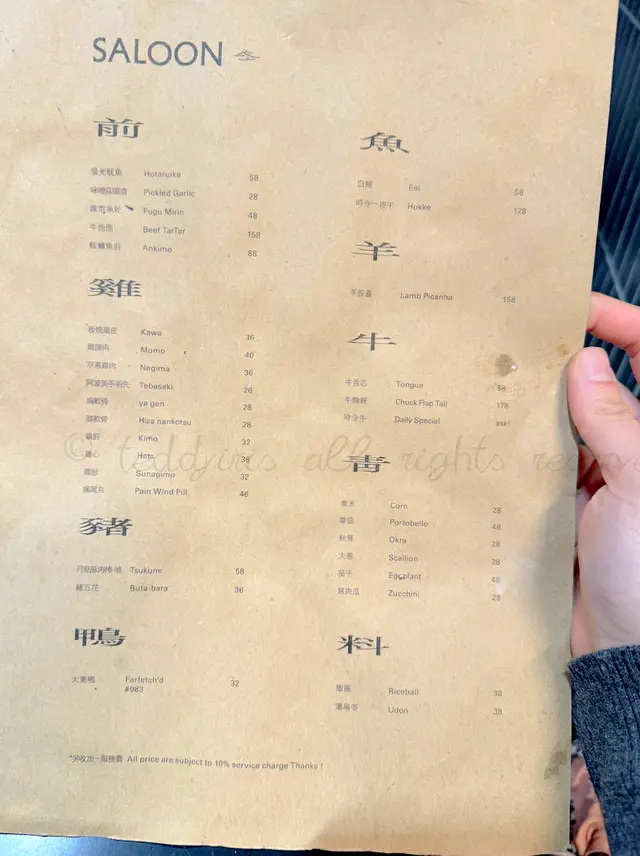 SALOON
前
螢光魷魚 Hotaruika 58
Pickled Garlic 28
Fugu Mirin 48
牛他他 Beef TarTar 158
鮟鱇魚肝 Ankimo 88
雞
板燒雞皮 Kawa 36
雞腿肉 Momo 40
京蔥雞肉 Negima 36
阿波美手羽先 Tebasaki 26
胸軟骨 ya gen 28
膝軟骨 Hiza nankotsu 28
雞肝 Kimo 32
雞心 Hats 36
雞胗 Sunagimo 32
Pain Wind Pill 46
豬
月見豚肉棒 燒 Tsukune 58
豬五花 Buta-bara 36
鴨
大蔥鴨 Farfetch'd 32
#083
*另收加一服務費 All price are subject to 10% service charge Thanks !
魚
白鱔 Eel 58
時令一夜干 Hokke 128
羊
羊股蓋 Lamb Picanha 158
牛
牛舌芯 Tongue 58
Chuck Flap Tail 178
時令牛 Daily Special ask!
靑
粟米 Corn 28
蘑菇 Portobello 48
秋葵 Okra 28
大蔥 Scallion 28
茄子 Eggplant 48
翠肉瓜 Zucchini 28
料
飯團 Riceball 38
湯烏冬 Udon 38
© teddyiris all rights reserve